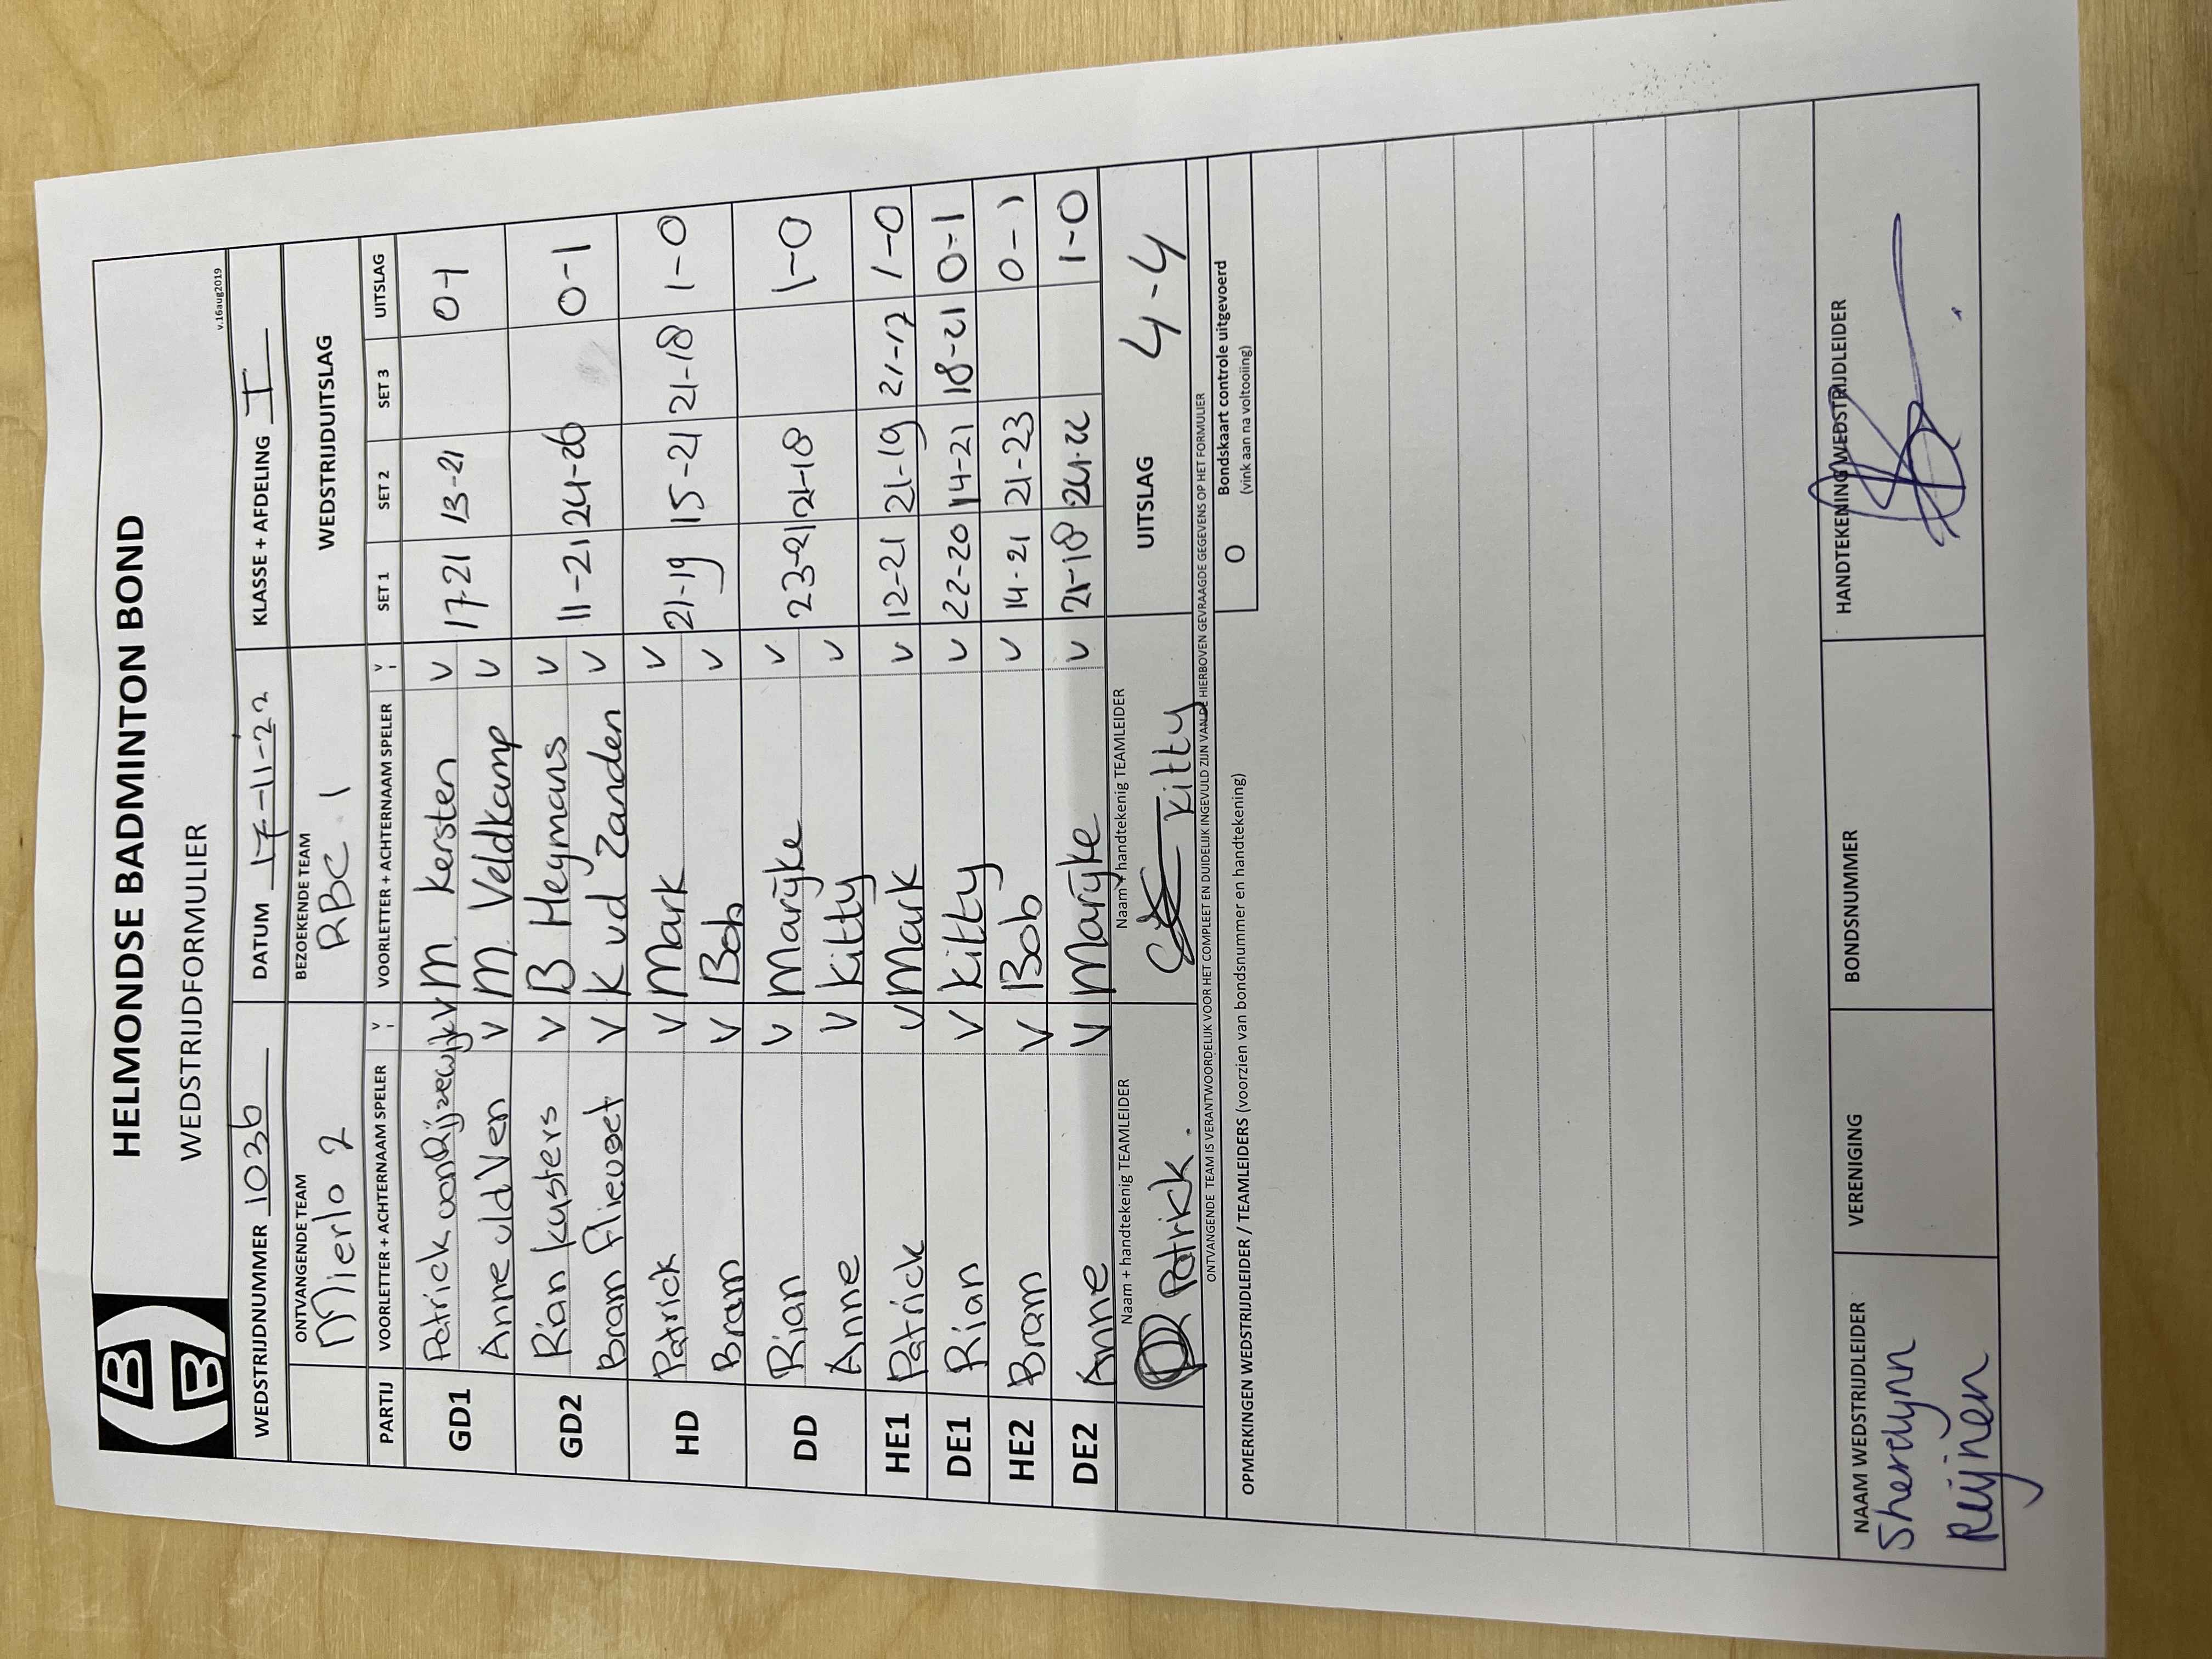 HELMONDSE BADMINTON BOND
WEDSTRIJDFORMULIER
v.16aug2019
WEDSTRIJDNUMMER 1036 DATUM 17-11-22 KLASSE + AFDELING I
ONTVANGENDE TEAM BEZOEKENDE TEAM WEDSTRIJDUITSLAG
Mierlo 2 RBC 1
PARTIJ VOORLETTER + ACHTERNAAM SPELER V VOORLETTER + ACHTERNAAM SPELER V SET 1 SET 2 SET 3 UITSLAG
GD1 Patrick van Rijzewijk V M. Kersten V 17-21 13-21 0-1
Anne v/d Ven V M. Veldkamp V
GD2 Rian Kusters V B Heymans V 11-21 24-26 0-1
Bram V K vd Zanden V
HD Patrick V Mark V 21-19 15-21 21-18 1-0
Bram V Bob V
DD Rian V Marijke V 23-21 21-18 1-0
Anne V Kitty V
HE1 Patrick V Mark V 12-21 21-19 21-17 1-0
DE1 Rian V Kitty V 22-20 14-21 18-21 0-1
HE2 Bram V Bob V 14-21 21-23 0-1
DE2 Anne V Marijke V 21-18 24-22 1-0
Naam + handtekenig TEAMLEIDER Naam + handtekenig TEAMLEIDER UITSLAG 4-4
Patrick. Kitty
ONTVANGENDE TEAM IS VERANTWOORDELIJK VOOR HET COMPLEET EN DUIDELIJK INGEVULD ZIJN VAN DE HIERBOVEN GEVRAAGDE GEGEVENS OP HET FORMULIER
OPMERKINGEN WEDSTRIJDLEIDER / TEAMLEIDERS (voorzien van bondsnummer en handtekening) O Bondskaart controle uitgevoerd
(vink aan na voltooiing)
NAAM WEDSTRIJDLEIDER VERENIGING BONDSNUMMER HANDTEKENING WEDSTRIJDLEIDER
Sherelynn
Reijnen